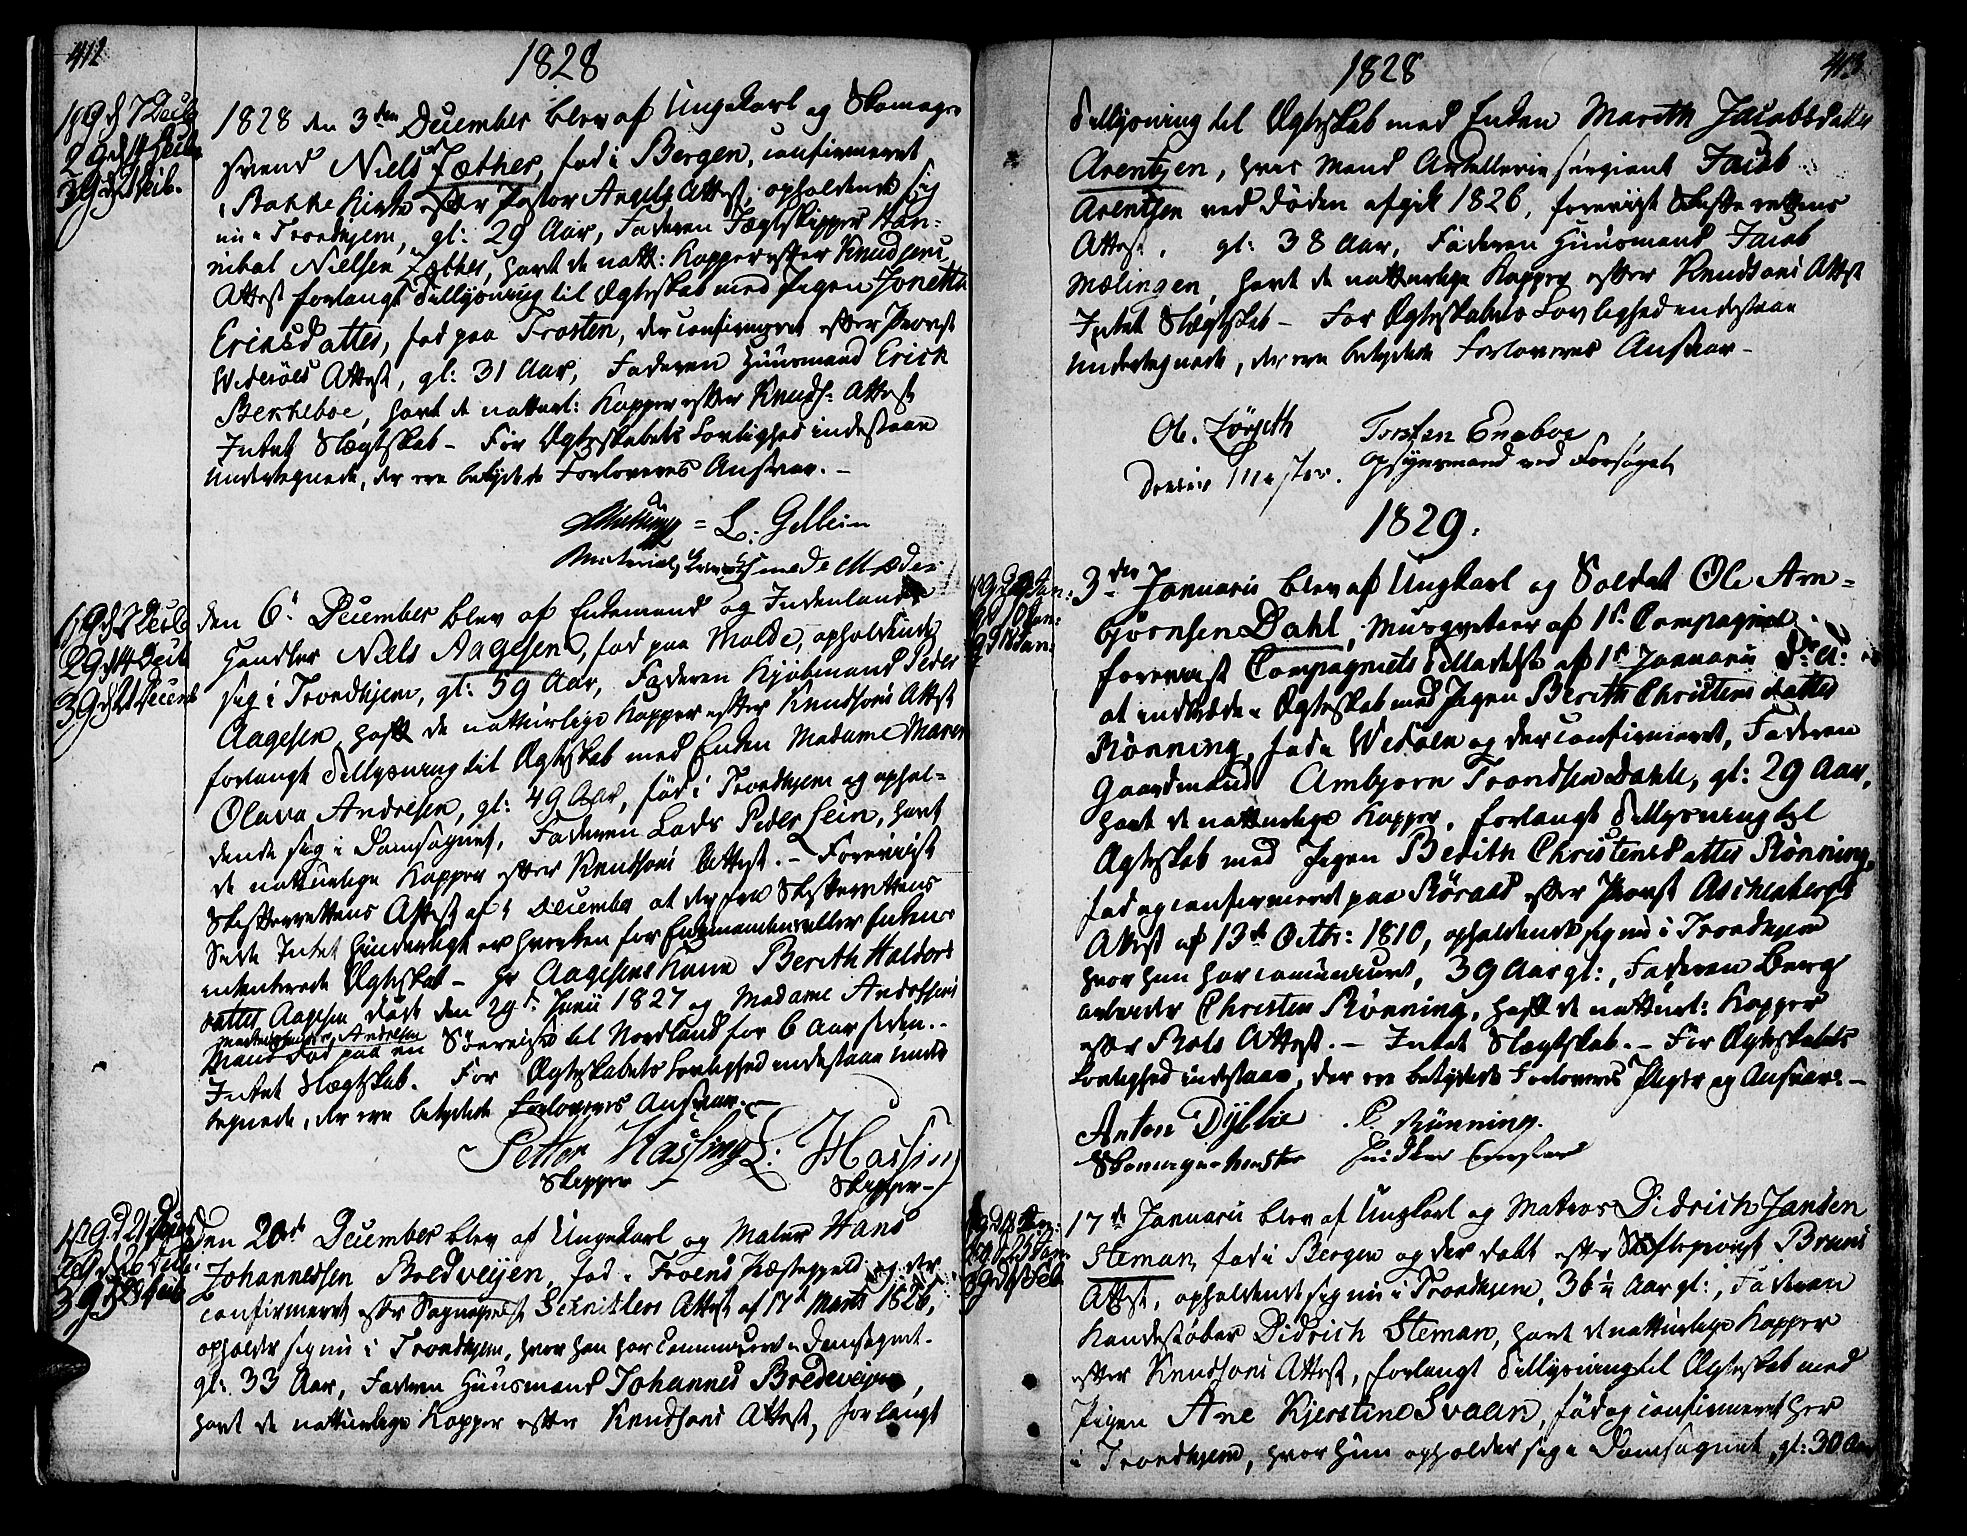 412
1828
1ste G. d. 7 Decb.
2 G. d. 14 Decb.
3 G. d. 21 Decb.
1828 den 3die December blev af Ungekarl og Skomager
svend Niels Jæther, fød i Bergen, confirmeret
i Bakke Kirke efter Pastor Angels Attest, opholdende sig
nu i Trondhjem, gl: 29 Aar, Faderen Jægtskipper Han-
nibal Nielsen Jæther, havt de natt: Kopper efter Knudsons
Attest forlangt Tillysning til Ægteskab med Pigen Jonetta
Ericsdatter, fød paa Frosten, der confirmeret efter Provst
Widerøes Attest, gl: 31 Aar, Faderen Huusmand Erich
Berkeboe, havt de naturl: Kopper efter Knuds: Attest
Intet Slægtskab – For Ægteskabets Lovlighed indestaae
undertegnede, der ere betydede Forloveres Ansvar. –
L. Gellein
den 6te December blev af Enkemand og Indenlands
Handler Niels Aagesen, fød paa Molde, opholdende
sig i Trondhjem, gl: 59 Aar, Faderen Kjøbmand Peder
Aagesen, havt de naturlige Kopper efter Knudsons Attest
forlangt Tillysning til Ægteskab med Enken Madame Maren
Olava Andresen, gl: 49 Aar, fød i Trondhjem og ophol-
dende sig i Domsognet, Faderen Lods Peder Lein, havt
de naturlige Kopper efter Knudsons Attest. – Foreviist
Skifterettens Attest af 5 December at der fra Skifterettens
Side Intet hinderligt er hverken for Enkemanden eller Enkens
intenterede Ægteskab – Hr Aagesens Kone Berith Haldors
datter Aagesen døde den 29de Junii 1827 og Madame Andresens
Mand Andresen
død paa en Søereise til Nordland for 6 Aar siden. –
Intet Slægtskab. For Ægteskabets Lovlighed indestaae under
tegnede, der ere betydede Forloveres Ansvar. –
Petter Hassing L: Hassing
Skipper Skipper
Den 20de December blev af Ungekarl og Maler Hans
Johannessen Bredveijen, fød i Froens Præstegjeld og der
confirmeret efter Sognepræst Schnitlers Attest af 17de Marts 1826,
opholder sig nu i Trondhjem, hvor han har Communiceret i Domsognet.
gl: 33 Aar, Faderen Huusmand Johannes Bredeveijen,
havt de naturlige Kopper efter Knudsons Attest, forlangt
413
1828
Tillysning til Ægteskab med Enken Marith Jacobsdatter
Arentzen, hvis Mand Artillerie sergiant Jacob
Arentzen ved Døden afgik 1826, foreviist Skifterettens
Attest. gl: 38 Aar, Faderen Huusmand Jacob
Mælingen, havt de naturlige Kopper efter Knudsons Attest
Intet Slægtskab – For Ægteskabets Lovlighed indestaae
undertegnede, der ere betydede Forloveres Ansvar –
Torsten Eneboe
Opsynsmand ved
1829.
3die Januarii blev af Ungkarl og Soldat Ole Arn-
bjørnsen Dahl, Musqueteer af 1ste Compagnie
foreviist Compagniets Tilladelse af 1ste Januarii d: A:
at indtræde i Ægteskab med Pigen Berith Christensdatter
Rønning, fød i Wedøen og der confirmeret, Faderen
Gaardmand Arnbjørn Trondsen Dahl, gl: 29 Aar,
havt de naturlige Kopper, forlangt Tillysning til
Ægteskab med Pigen Berith Christensdatter Rønning,
fød og confirmeret paa Røraas efter Provst Aschenbergs
Attest af 13de Octbr: 1810, opholdende sig nu i Trondhjem
hvor hun har communiceret, 39 Aar gl:, Faderen Berg
arbeider Christen Rønning, havt de naturl: Kopper
efter Rols Attest. – Intet Slægtskab. – For Ægteskabets
Lovlighed indestaae, der ere betydede Forloveres Pligter og Ansvar. –
Rønning.
Skomagermester
17de Januarii blev af Ungkarl og Matros Didrich Jansen
Steman, fød i Bergen og der døbt efter Stiftsprovst Bruns
Attest, opholdende sig nu i Trondhjem, 36½ Aar gl:, Faderen
Kandestøber Didrich Steman, havt de naturlige Kopper
efter Knudsons Attest, forlangt Tillysning til Ægteskab med
Pigen Ane Kjerstine Svaan, fød og confirmeret her
i Trondhjem, hvor hun opholder sig i Domsognet, gl: 30 Aar